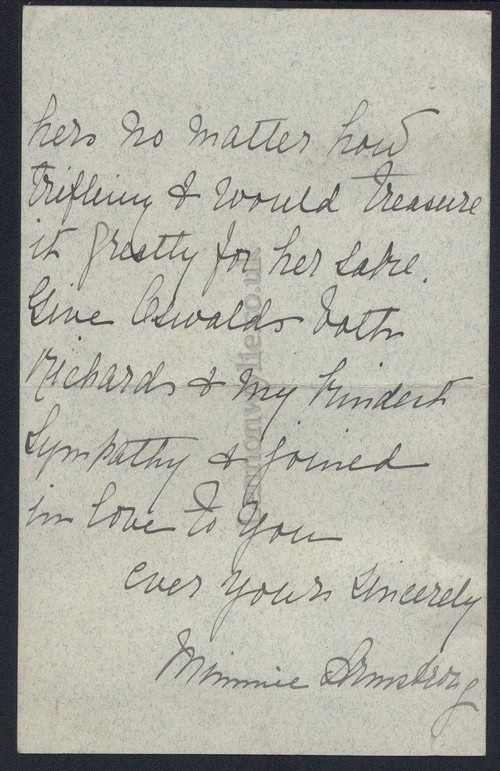 hers no matter how
trifling I would treasure
it greatly for her sake.
Give Oswalds both
Richards & my kindest
Sympathy & joined
in love to you
ever yours sincerely
Minnie Armstrong